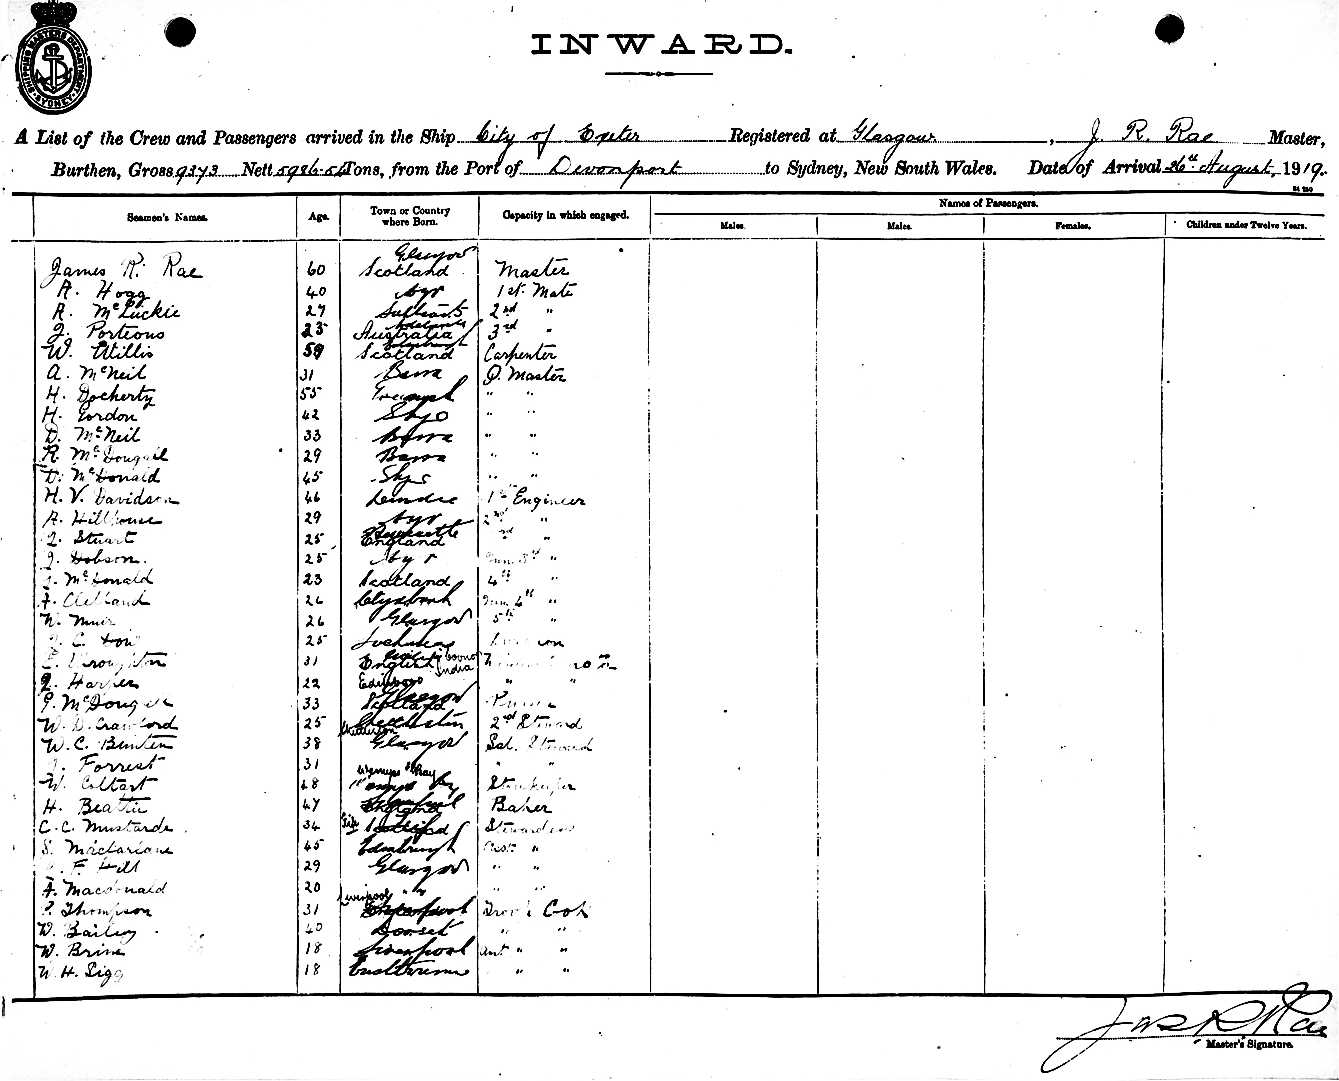 SHIPPING MASTERS DEPARTMENT SYDNEY
INWARD.
A List of the Crew and Passengers arrived in the Ship City of Exeter Registered at Glasgow, J R. Rae Master,
Burthen, Gross 9373 Nett 5986.54 Tons, from the Port of Devonport to Sydney, New South Wales. Date of Arrival 26th August, 1919.
Seamen's Names. Age. Town or Country where Born. Capacity in which engaged. Names of Passengers.
Males. Males. Females. Children under Twelve Years.
James R. Rae 60 Glasgow Scotland Master
A. Hogg 40 Ayr 1st. Mate
R. McLuckie 27 2nd "
J. Porteous 23 Adelaide Australia 3rd "
W. Willis 59 Edinburgh Scotland Carpenter
A. McNeil 31 Barra Q. Master
H. Docherty 55 " "
H. Gordon 42 Skye " "
D. McNeil 33 Barra " "
R. McDougall 29 Barra " "
D. McDonald 45 Skye " "
H. V. Davidson 46 Dundee 1st Engineer
A. Hillhouse 29 Ayr 2nd "
J. Stuart 25 Newcastle England "
J. Hobson. 25 Ayr Jun. 3rd "
J. McDonald 23 Scotland 4th "
A. Clelland 26 Clydebank Jun. 4th "
W. Muir 26 Glasgow 5th "
C. 25
31 English India
J. Harper 22 Edinboro " "
McDougall 33 Glasgow Scotland Purser
W. D. Crawford 25 2nd Steward
W. C. Bunten 38 Glasgow Sal. Steward
J. Forrest 31 " "
W. Coltart 48 Wemyss Bay Storekeeper
H. Beattie 47 England Baker
C. C. Mustarde 34 Fife Stewardess
S. Macfarlane 45 Edinburgh Asst "
F. Hill 29 Glasgow " "
A. Macdonald 20 " " " "
P. Thompson 31 Liverpool Cook
W. Bailey 40 Dorset " "
W. Brine 18 Liverpool Asst " "
W. H. Sigg 18 " "
Jas R Rae
Master's Signature.